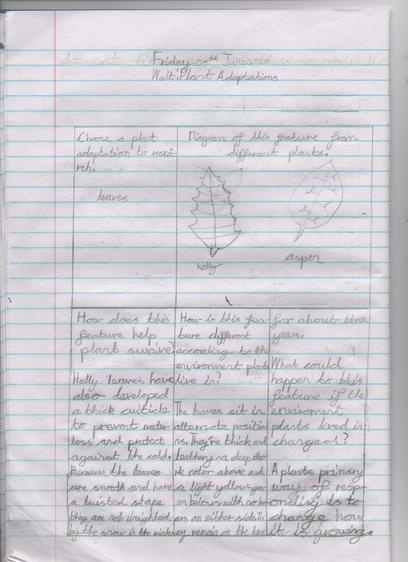 Friday June
Walt: Plant Adaptations
Choose a plant
adaptation to resea-
rch.
leaves
Diagram of this feature from
different plants.
holly
aspen
How does this
feature help
plant survive?
Holly leaves have
also developed
a thick cuiticle
to prevent water
loss and protect
against the cold.
Because the leaves
are smooth and have
a twisted shape
they are not weighted
by the snow in the
How is this fea-
ture different
according to the
environment plants
live in?
The leaves sit in
alternate positio-
ns. They're thick and
leathery a deep
color above and
a light yellow
below with
on either side
remain on the
for about three
years.
What could
happen to this
feature if the
enviroment
plants lived in
changed?
A plants primary
way of resp-
onding is to
change how
it is growing.